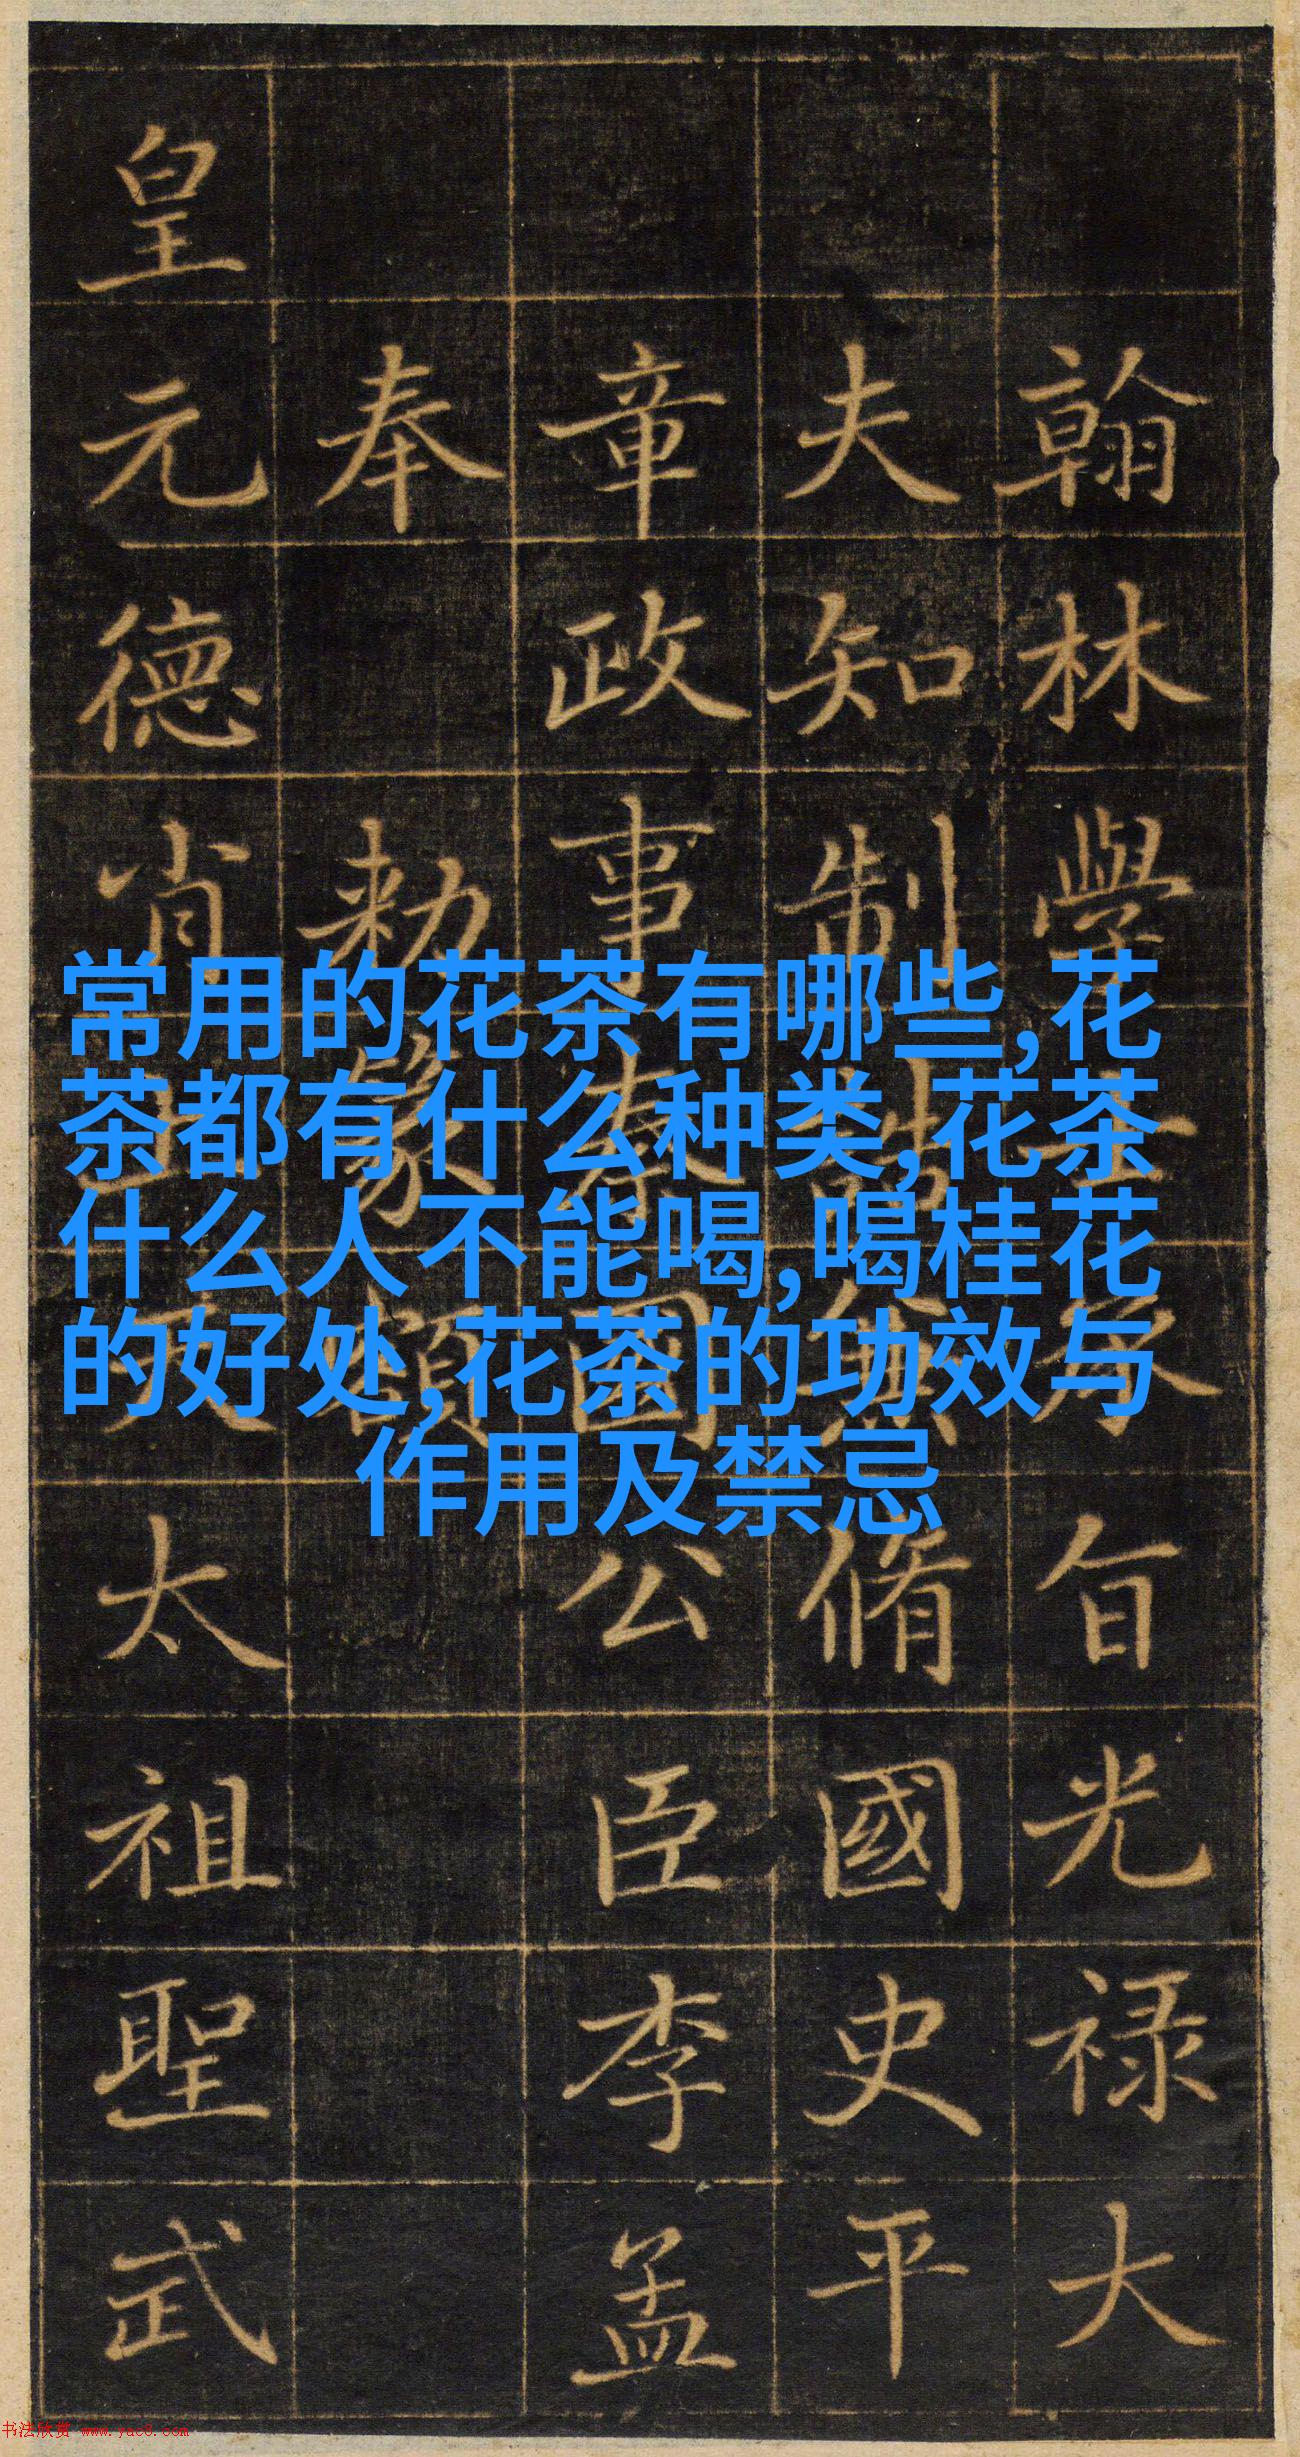 翰林學士承旨光祿大
夫知制誥兼脩國史平
章政事秦國公臣李孟
奉勑篆額
皇元德肖天太祖聖武
常用的花茶有哪些,花
茶都有什么种类,花茶
什么人不能喝,喝桂花
的好处,花茶的功效与
作用及禁忌
书法欣赏 www.yac8.com